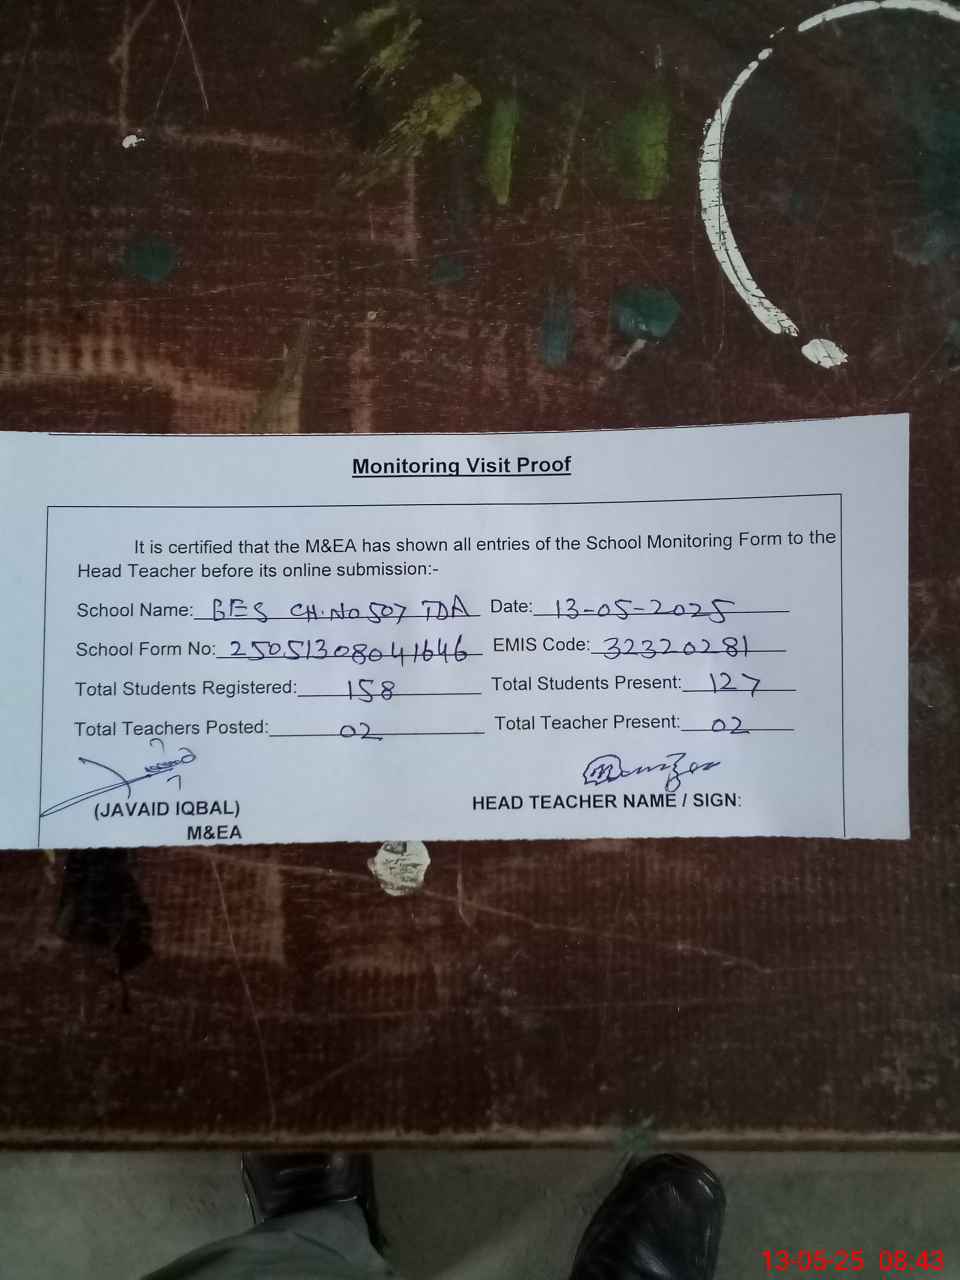 Monitoring Visit Proof
It is certified that the M&EA has shown all entries of the School Monitoring Form to the
Head Teacher before its online submission:-
School Name: BES CH.No 507 TDA Date: 13-05-2025
School Form No: 25051308041646 EMIS Code: 32320281
Total Students Registered: 158 Total Students Present: 127
Total Teachers Posted: 02 Total Teacher Present: 02
(JAVAID IQBAL) HEAD TEACHER NAME / SIGN:
M&EA
13-05-25 08:43